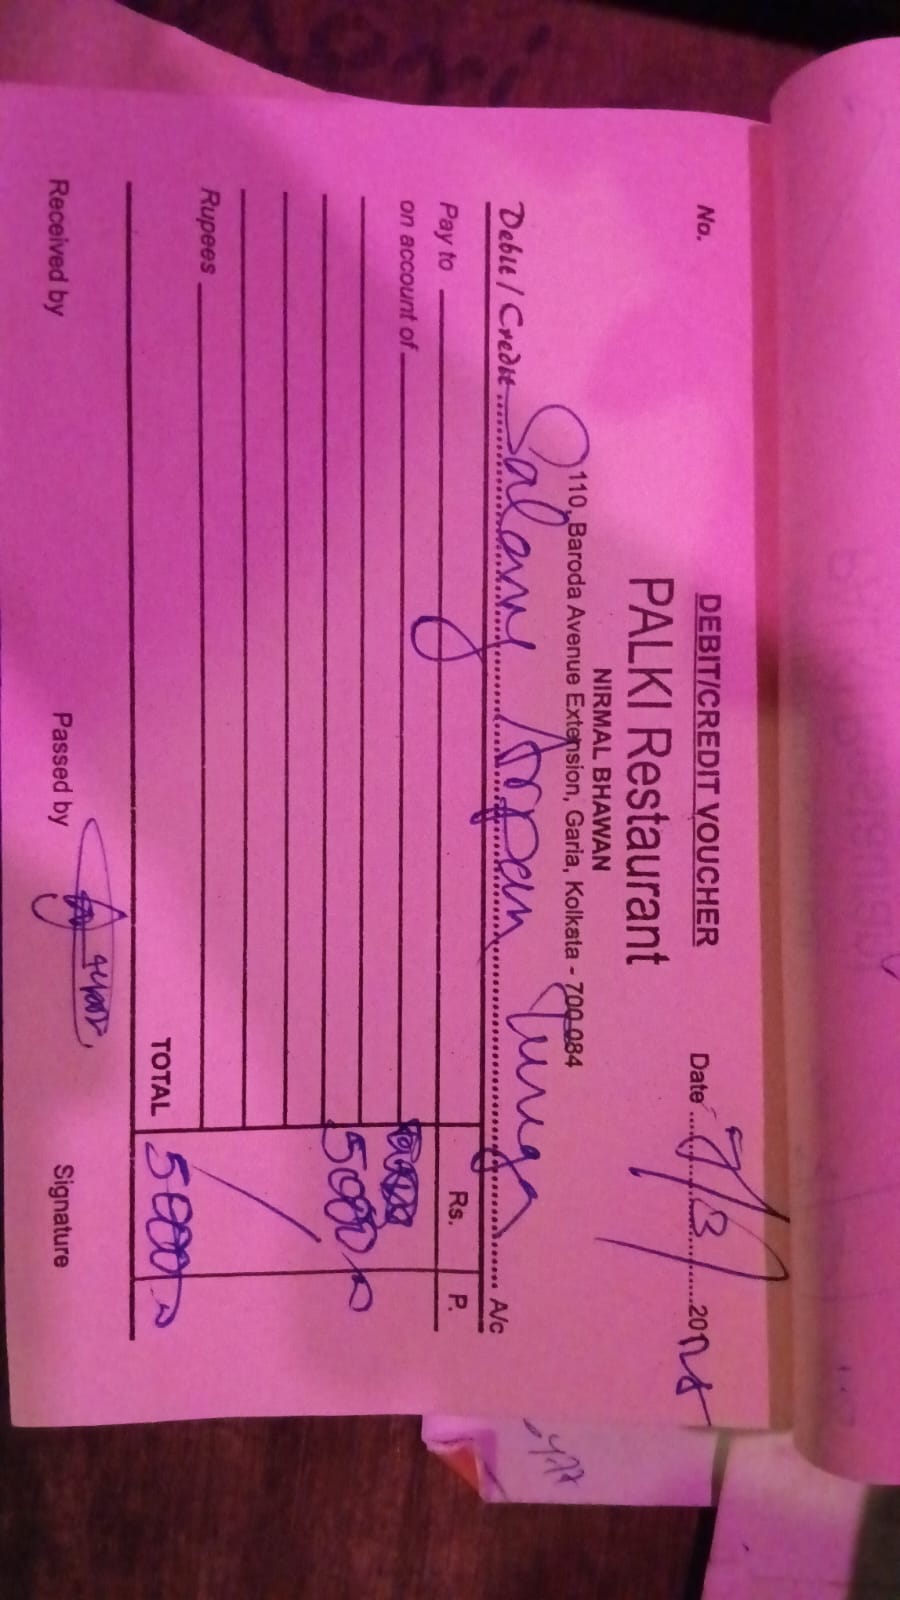 DEBIT/CREDIT VOUCHER
PALKI Restaurant
NIRMAL BHAWAN
110, Baroda Avenue Extension, Garia, Kolkata - 700 084
No.
Date 7/3/ 2025
Debit / Credit Salary Arpan Tunga A/c
Pay to Rs. P.
on account of
5000
Rupees
TOTAL 5000
Received by Passed by Signature